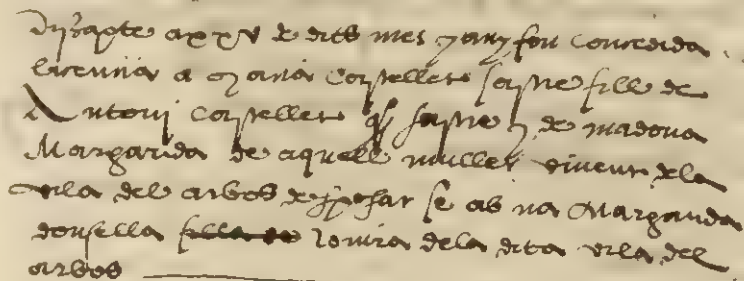 Dissapte a xxv de dits mes y any fou concedida
licentia a Maria Corteller sastre fill de
Antoni Corteller q° sastre y de madona
Margarida de aquell muller vivent dela
vila del arbos de sposar se ab na Margarida
donsella filla de Jovira dela dita vila del
arbos